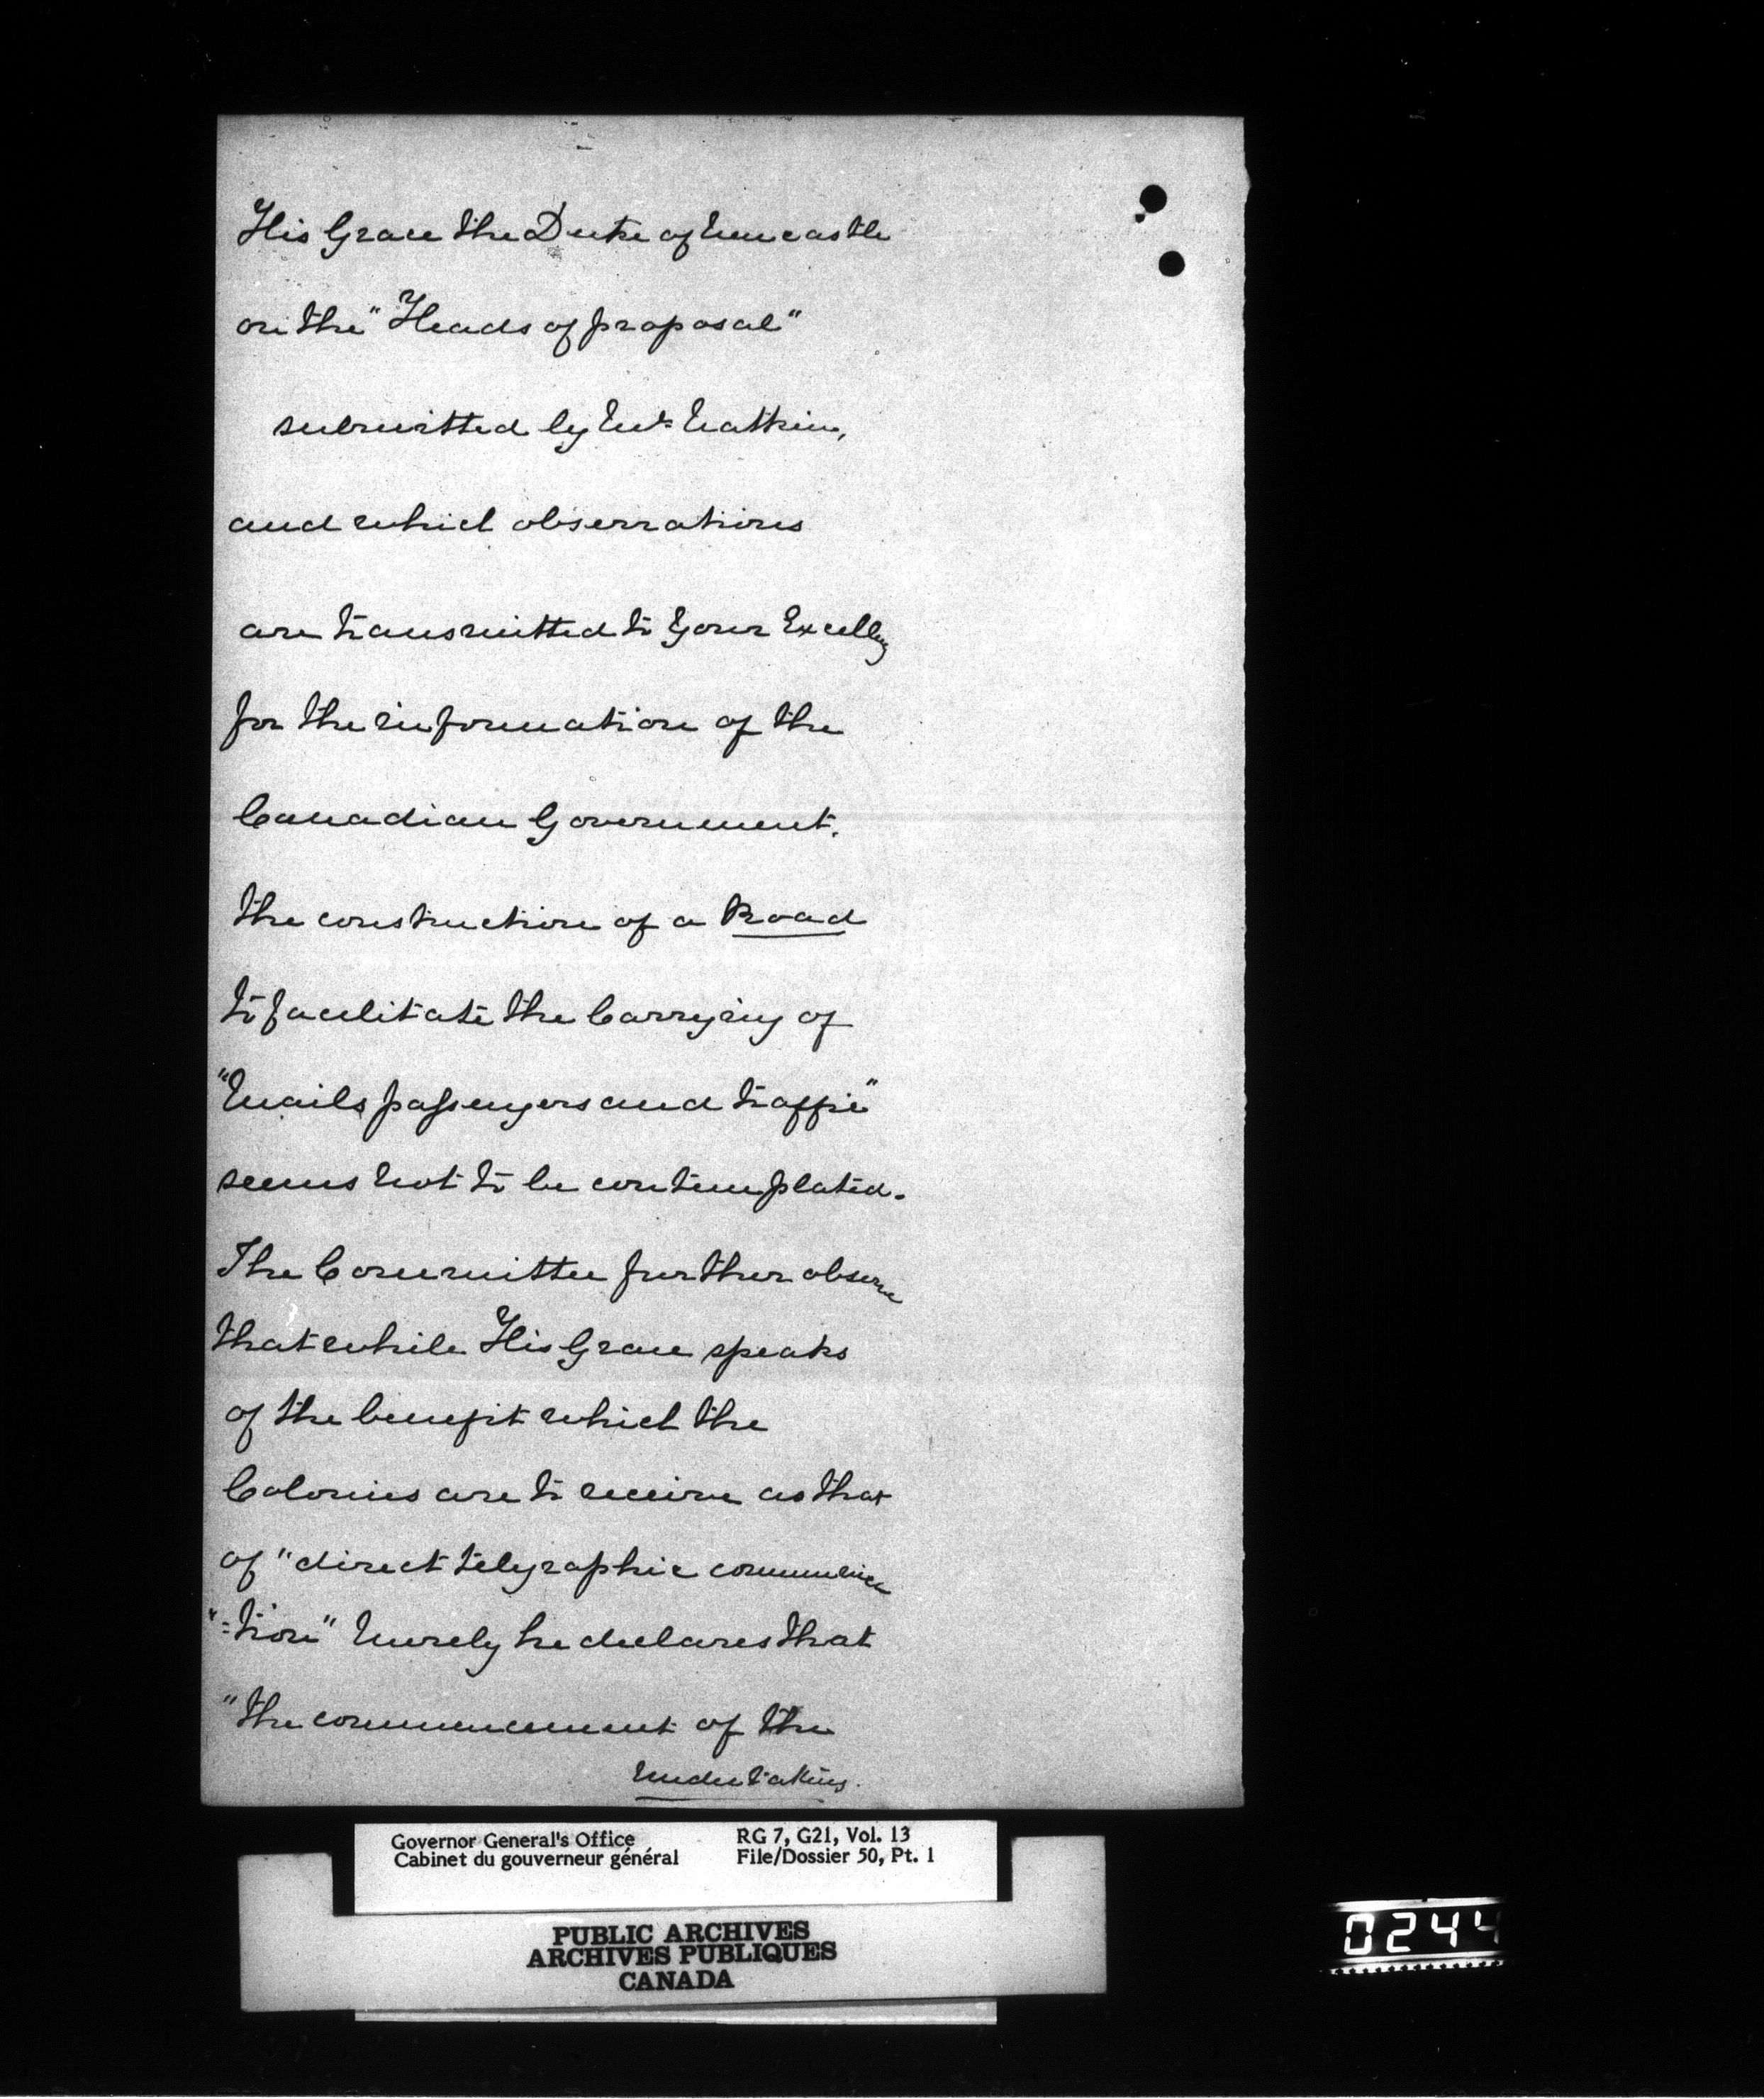 His Grace the Duke of Newcastle
on the "Heads of proposal"
submitted by Mr Watkin,
and which observations
are transmitted to Your Excellcy
for the information of the
Canadian Government.
the construction of a Road
to facilitate the Carrying of
"Mails passengers and traffic"
seems not to be contemplated.
The Committee further observe
that while His Grace speaks
of the benefit which the
Colonies are to receive as that
of "direct telegraphic communica
"=tion" merely he declares that
"the commencement of the
undertaking.
Governor General's Office
Cabinet du gouverneur général
RG 7, G21, Vol. 13
File/Dossier 50, Pt. 1
PUBLIC ARCHIVES
ARCHIVES PUBLIQUES
CANADA
0244